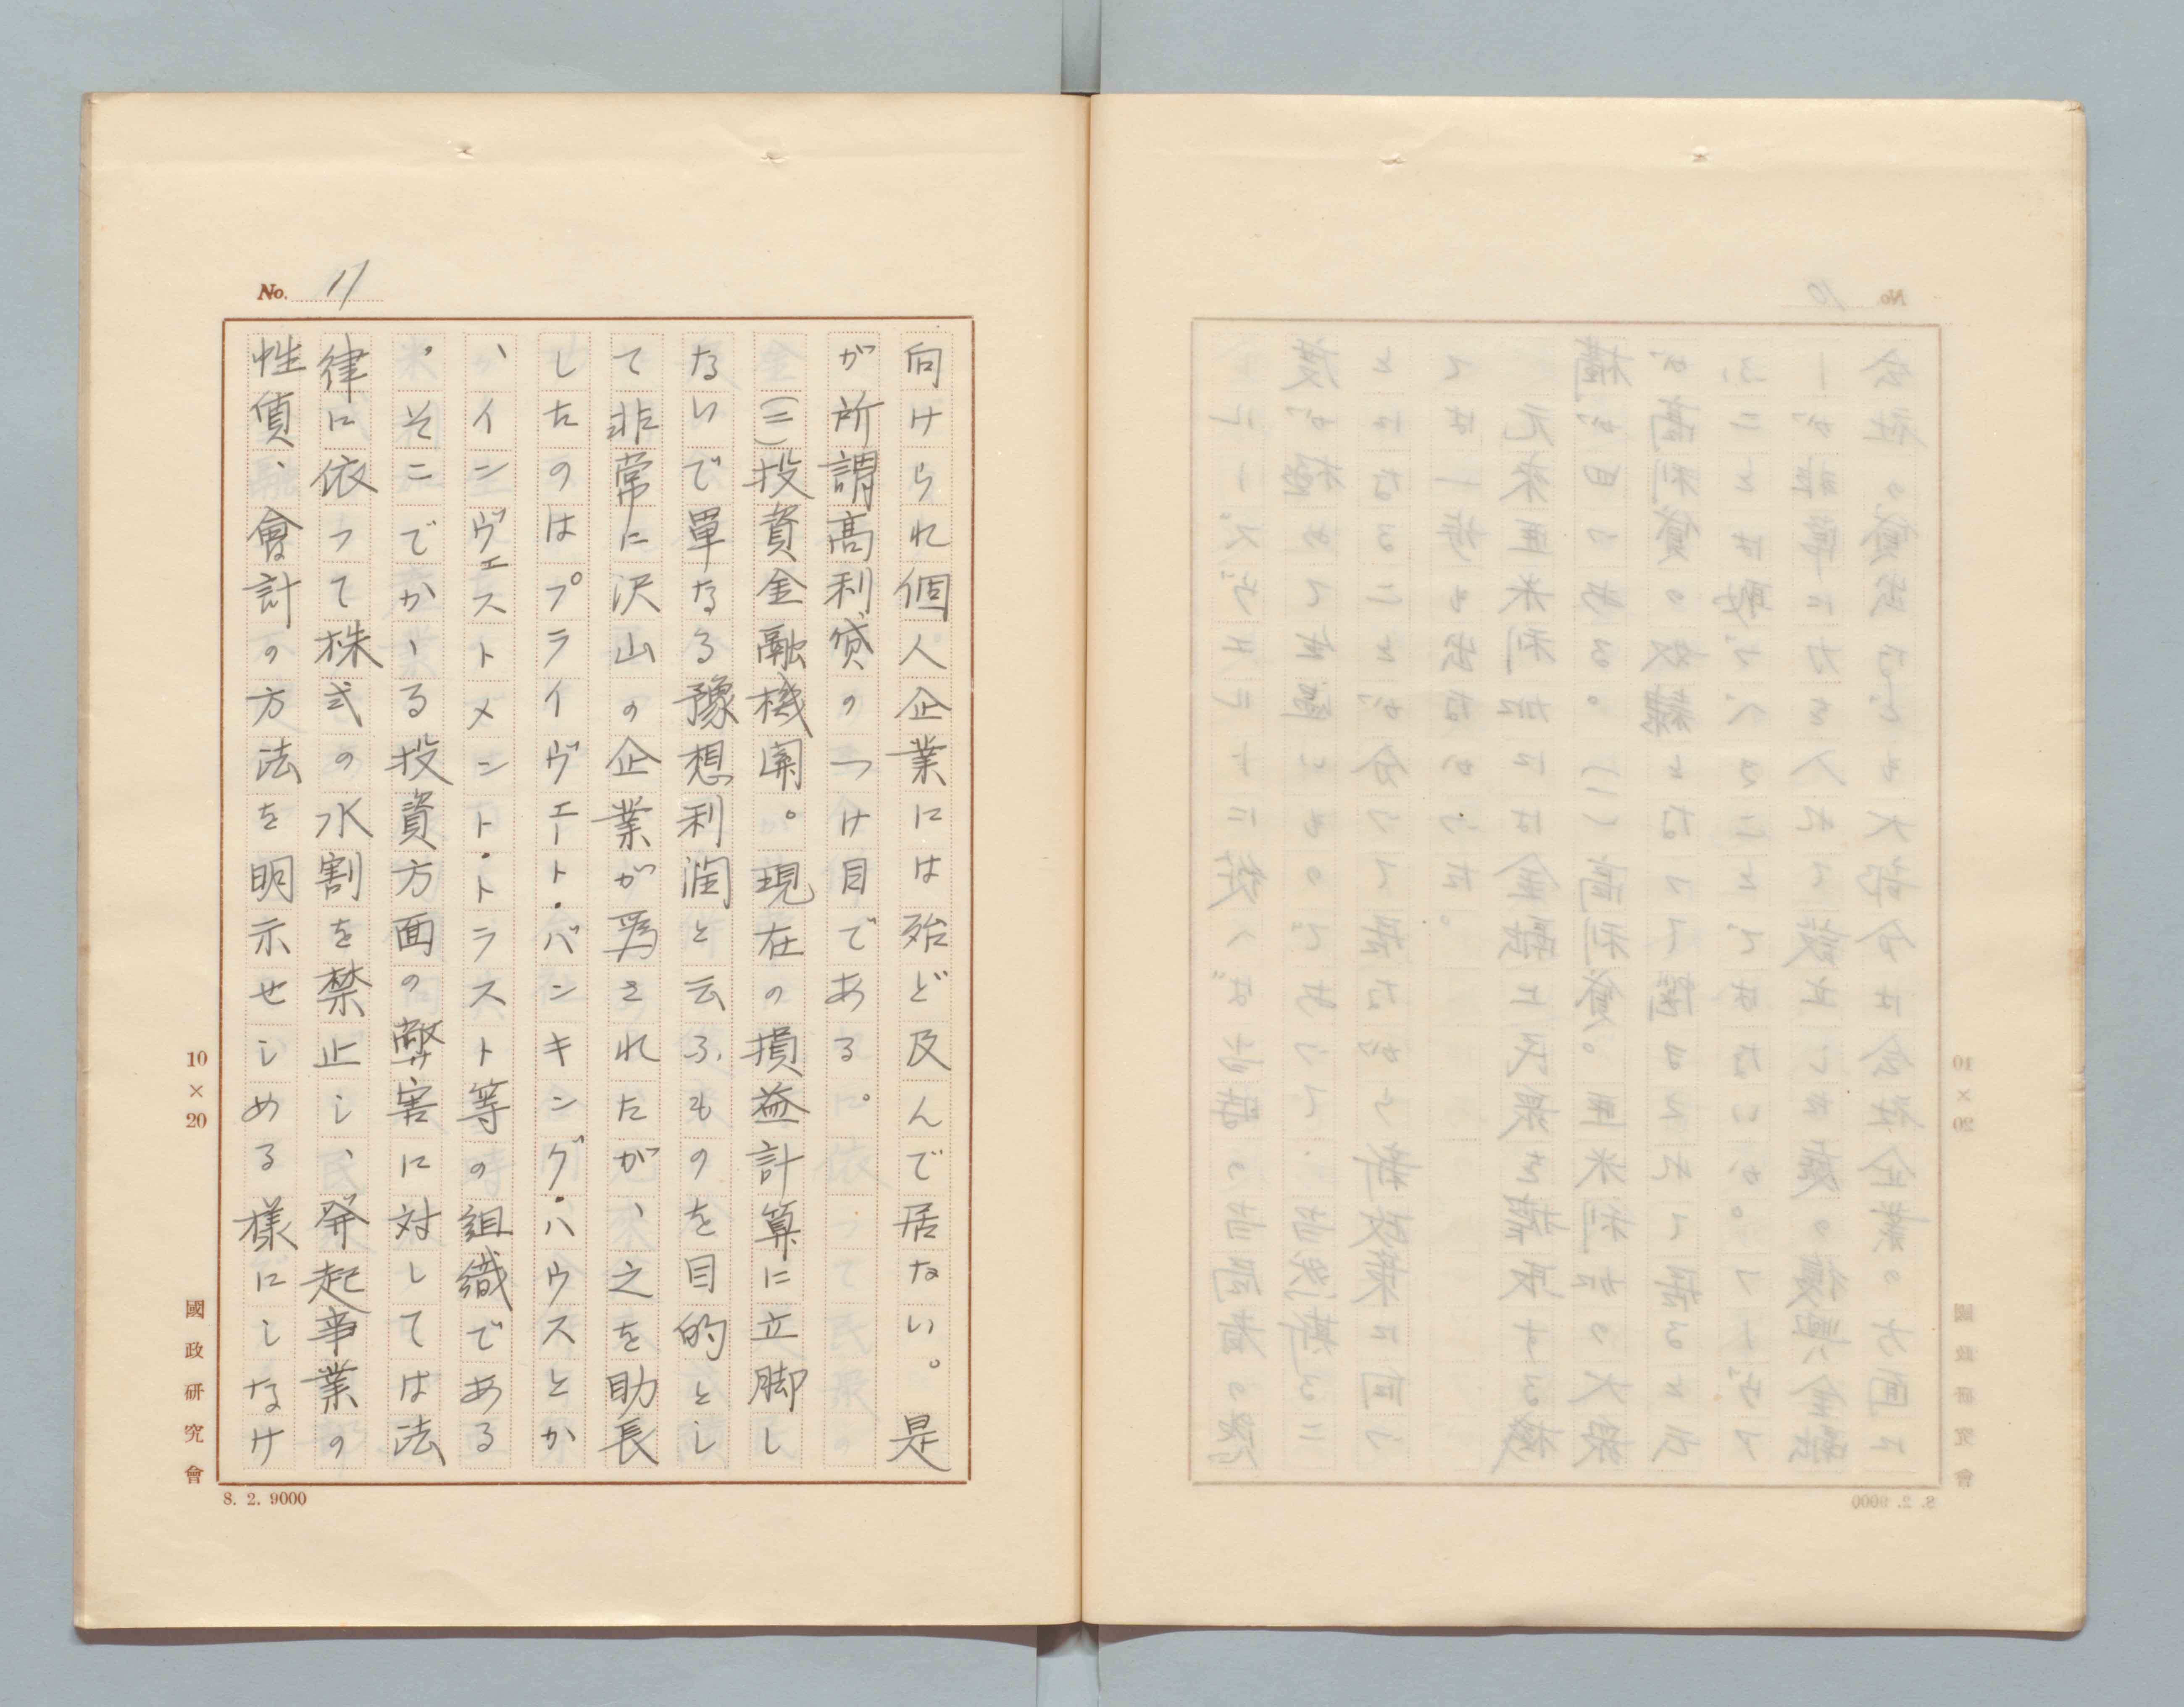 No. 11
向けられ個人企業には殆ど及んで居ない。是
が所謂高利貸のつけ目である。
(二)投資金融機関。現在の損益計算に立脚し
ないで單なる豫想利潤と云ふものを目的とし
て非常に沢山の企業が爲されたが、之を助長
したのはプライヴェート・バンキング・ハウスとか
、インヴェストメント・トラスト等の組織である
。そこでかゝる投資方面の弊害に対しては法
律に依つて株式の水割を禁止し、発起事業の
性質、會計の方法を明示せしめる様にしなけ
10×20
國政研究會
8. 2. 9000